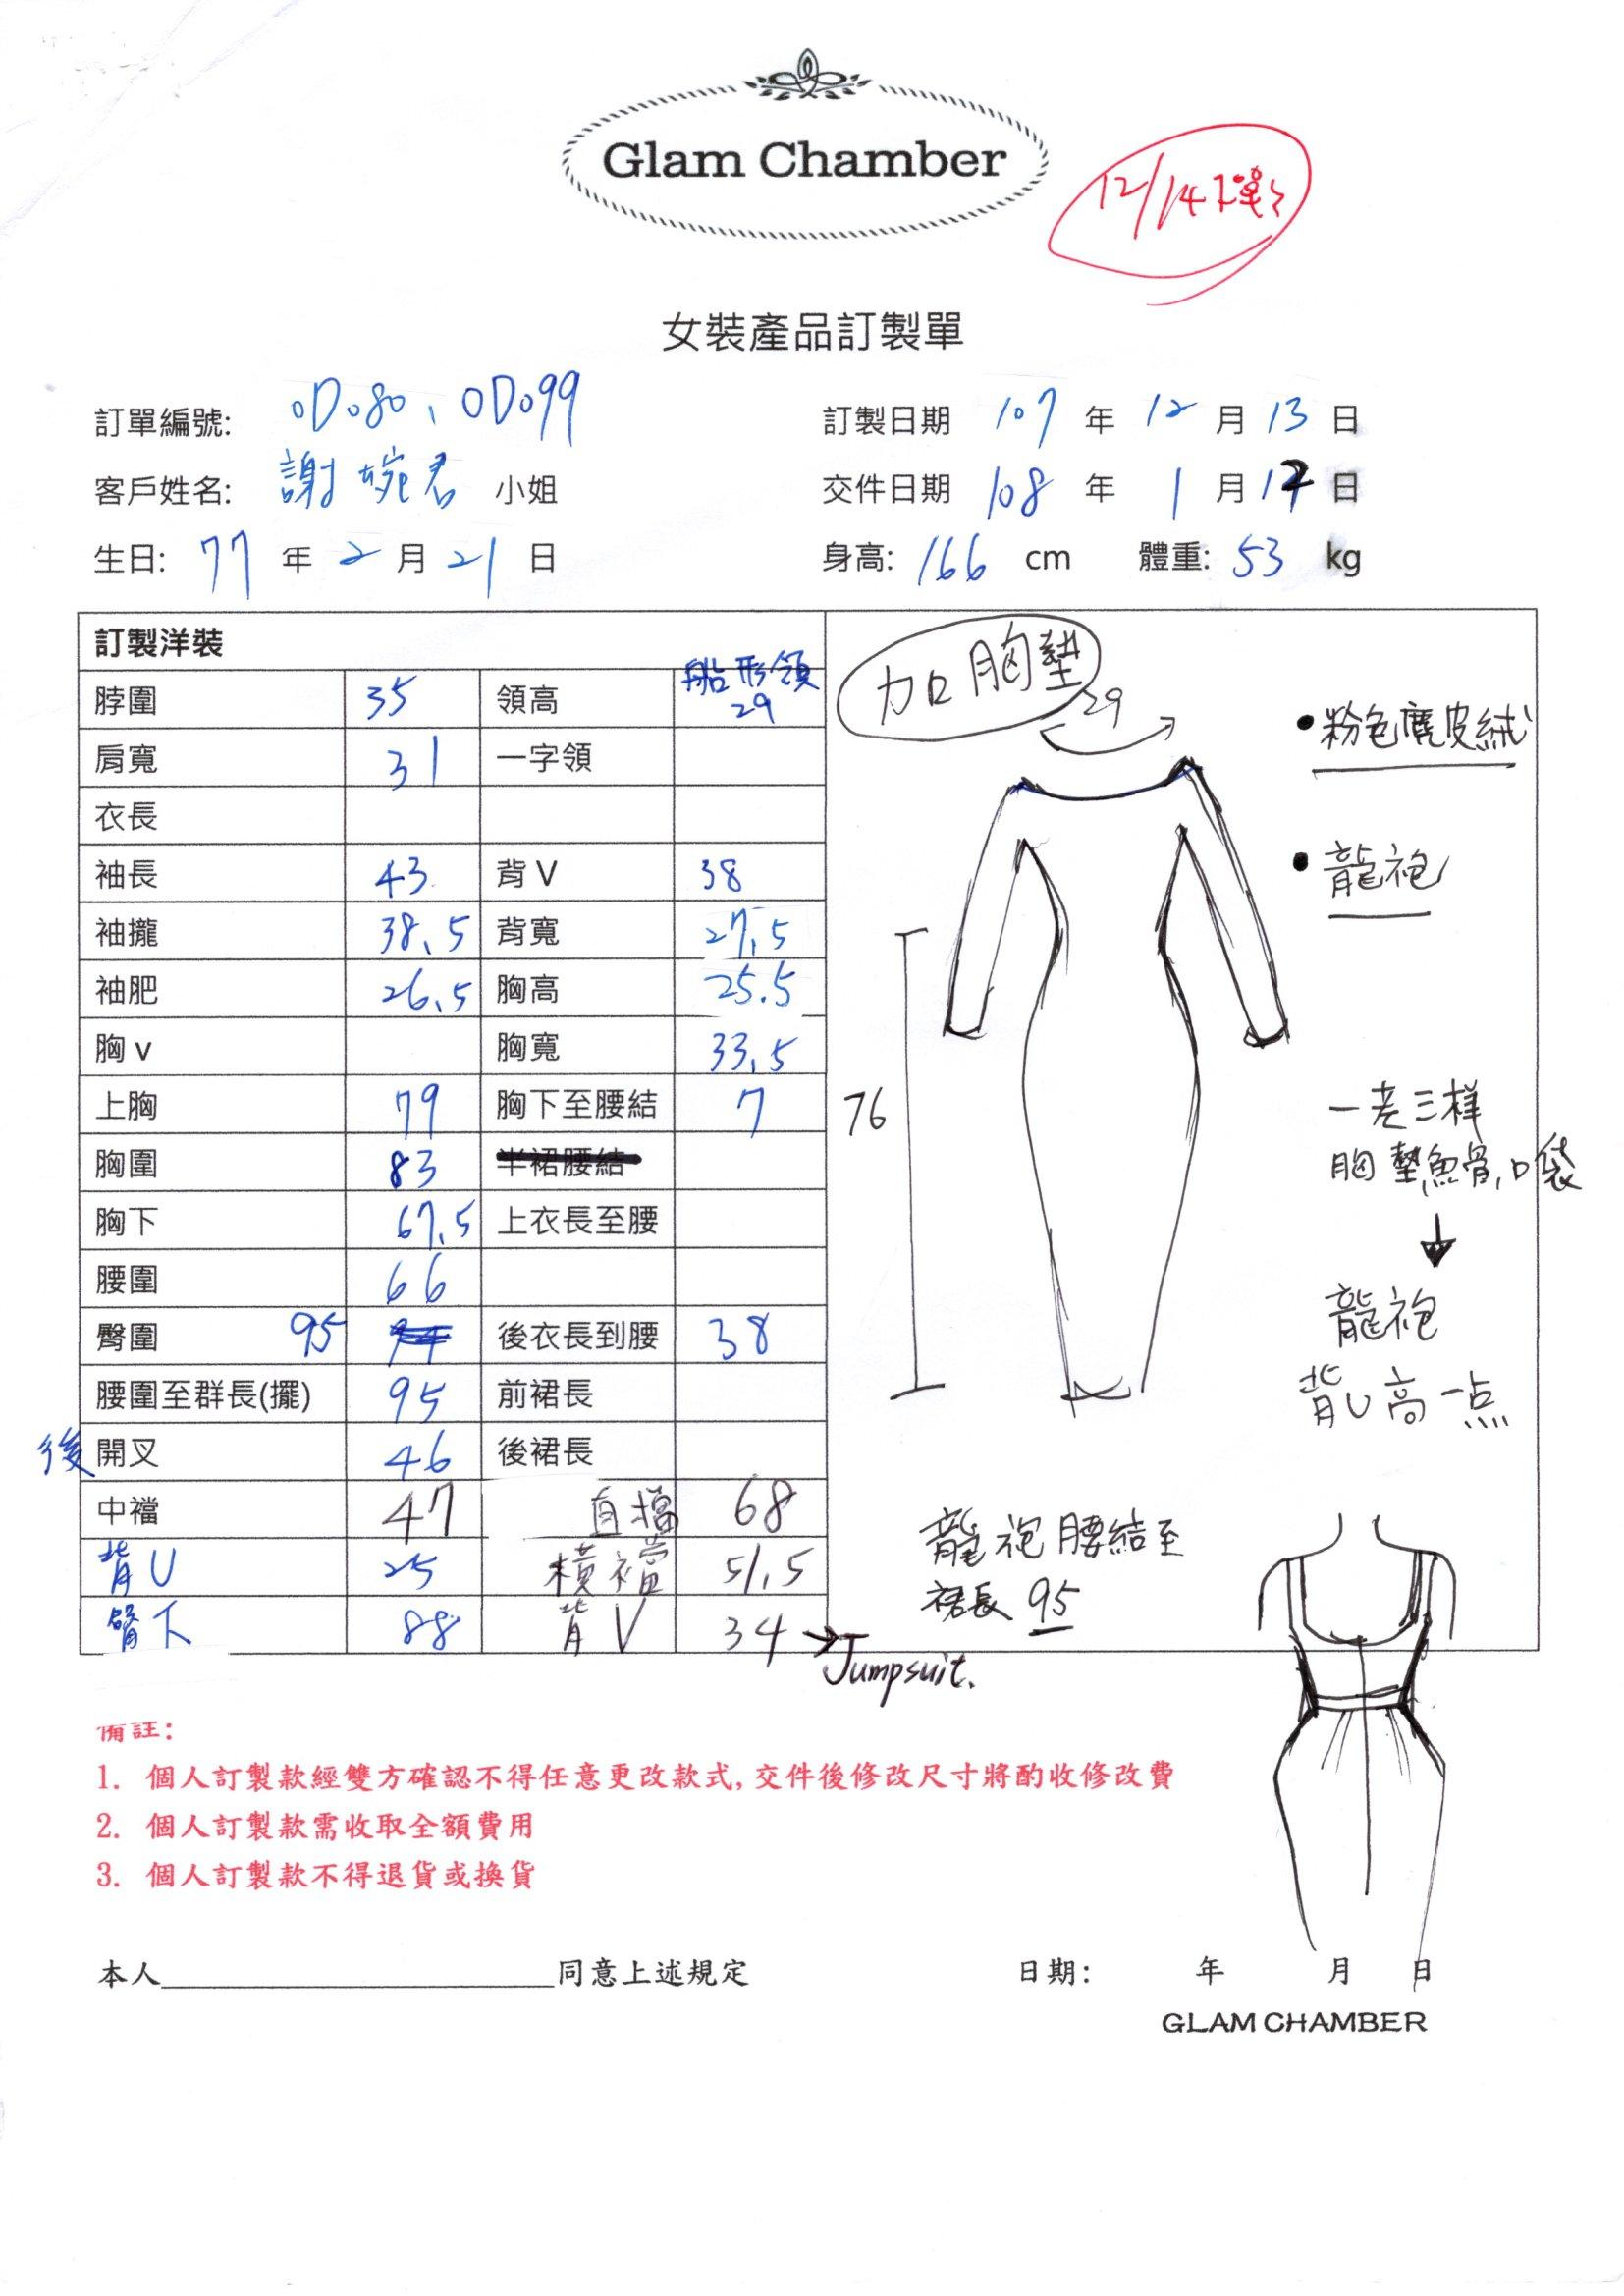 Glam Chamber
12/14
女裝產品訂製單
訂單編號: OD080、OD099 訂製日期 107 年 12 月 13 日
客戶姓名: 謝婉君 小姐 交件日期 108 年 1 月 17 日
生日: 77 年 2 月 21 日 身高: 166 cm 體重: 53 kg
訂製洋裝
脖圍 35 領高 船形領 29
肩寬 31 一字領
衣長
袖長 43 背 V 38
袖攏 38.5 背寬 27.5
袖肥 26.5 胸高 25.5
胸 v 胸寬 33.5
上胸 79 胸下至腰結 7
胸圍 83 半裙腰結
胸下 67.5 上衣長至腰
腰圍 66
臀圍 95 94 後衣長到腰 38
腰圍至群長(擺) 95 前裙長
後 開叉 46 後裙長
中襠 47 直擋 68
背U 25 橫襠 51.5
臀下 88 背V 34 → Jumpsuit.
加胸墊
29
• 粉色麂皮絨
• 龍袍
76
一老三樣
胸墊,魚骨,口袋
↓
龍袍
背U高一点
龍袍腰結至
裙長 95
備註:
1. 個人訂製款經雙方確認不得任意更改款式, 交件後修改尺寸將酌收修改費
2. 個人訂製款需收取全額費用
3. 個人訂製款不得退貨或換貨
本人 同意上述規定 日期: 年 月 日
GLAM CHAMBER